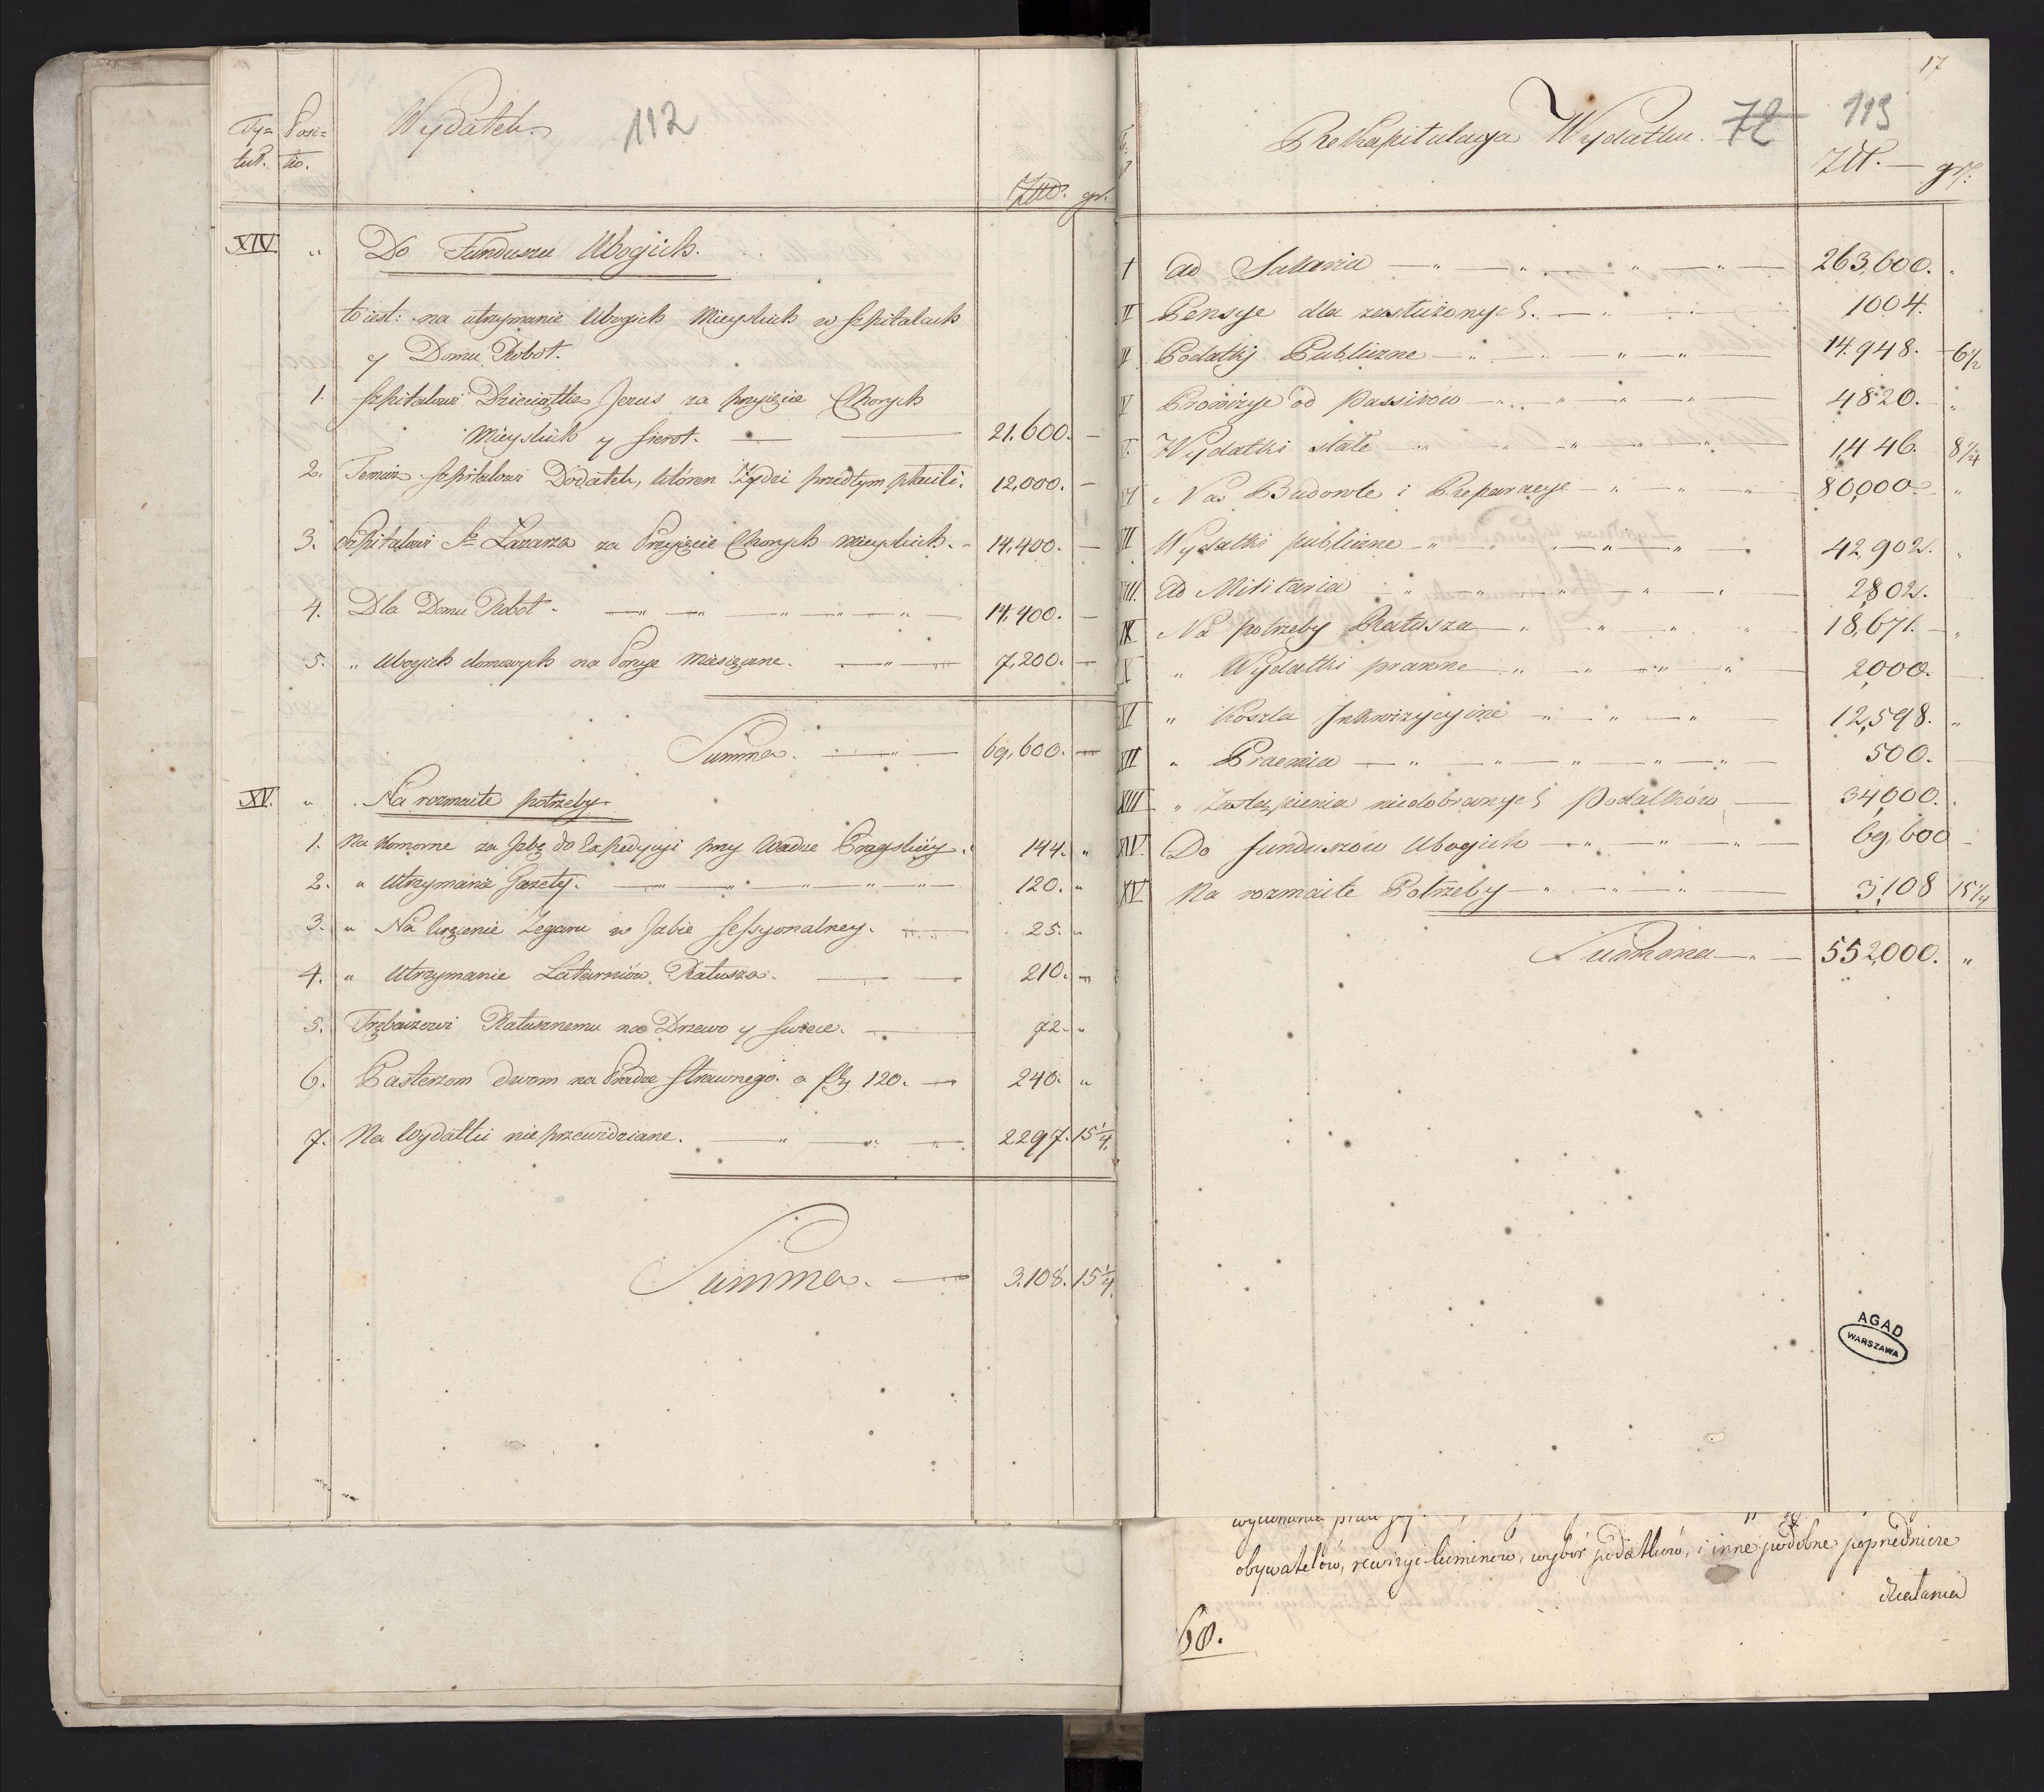 Ty= Posi= Wydatek. 112
tuł. tio.
Złł. gr.
XIV " Do Funduszu Ubogich.
to iest: na utrzymanie Ubogich Mieyskich w Szpitalach
y Domu Robot.
1. Szpitalowi Dzieciątka Jezus za przyięcie Chorych
Mieyskich y Sierot. — 21,600. —
2. Temuż Szpitalowi Dodatek, któren Żydzi przedtym płacili. 12,000. —
3. Szpitalowi Sgo Łazarza za Przyięcie Chorych mieyskich. 14,400. —
4. Dla Domu Robot. — " — " — 14,400. —
5. " Ubogich domowych na Porcye miesięczne. — " — 7,200. —
Summa. — " — 69,600. —
XV. " Na rozmaite potrzeby.
1. Na Komorne za Izbę do Expedycyi przy Wadze Pragskiey. 144. "
2. " Utrzymanie Gazety. — " — " — 120. "
3. " Na kręcenie Zegaru w Izbie Sessyonalney. — 25. "
4. " Utrzymanie Latarniów Ratusza. — 210. "
5. Trębaczowi Ratusznemu na Drzewo y Swiece. — 72. "
6. Pasterzom dwom na Pradze Strawnego. a 120. — 240. "
7. Na Wydatki nieprzewidziane. — " — " — 2297. 15 1/4.
Summa. — 3.108. 15 1/4.
17
Rekapitulacya Wydatku. 72 113
Złł. — gr:
I ad Sallaria — " — " — 263,600. "
II Pensye dla zasłużonych. — 1004.
II Podatki Publiczne — " — " — 14,948. — 6 1/2
V Prowizye od Passivów — " — " — 4820. — "
V. Wydatki stałe — " — " — 1,446. 8 1/4
VI Na Budowle i Reparacye — " — " — 80,000. "
VII Wydatki publiczne — " — " — 42,902. "
VIII. ad Militaria — " — " — 2,802.
IX Na potrzeby Ratusza — " — " — 18,671. — "
X " Wydatki prawne — " — " — 2,000.
XI " Koszta Inkwizycyine — " — " — 12,598. "
XII " Praemia — " — " — 500.
XIII " Zastąpienia niedobranych Podatków — 34,000.
XIV. Do funduszów Ubogich — " — " — 69,600 —
XV Na rozmaite Potrzeby — " — " — 3,108 15 1/4
Summa — " — 552,000. "
AGAD
WARSZAWA
obywatelów, rewizyi kominów, wybór podatków, i inne podobne poprzednicze
działania
60.